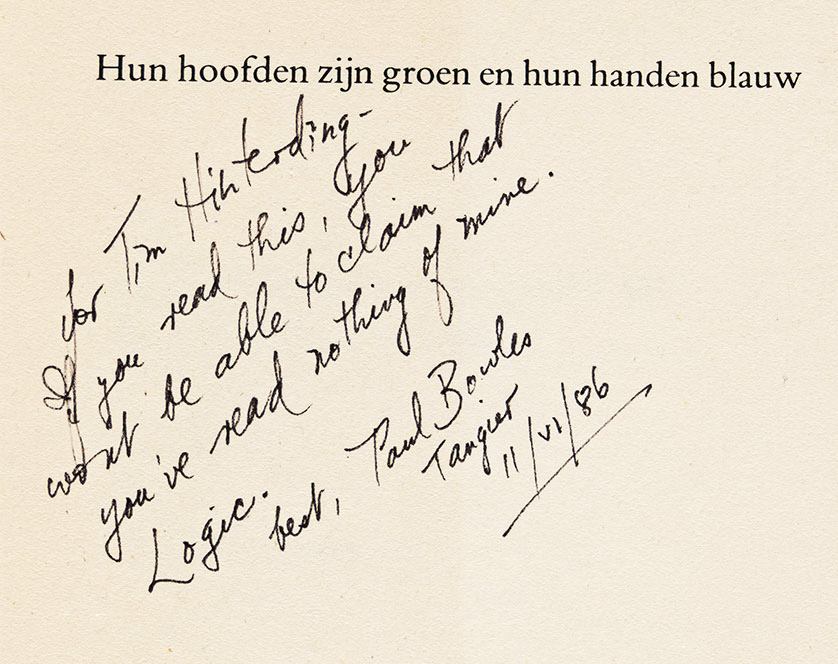 Hun hoofden zijn groen en hun handen blauw
for Tim Hinterding-
If you read this, you
won't be able to claim that
you've read nothing of mine.
Logic.
best,
Paul Bowles
Tangier
11/VI/86